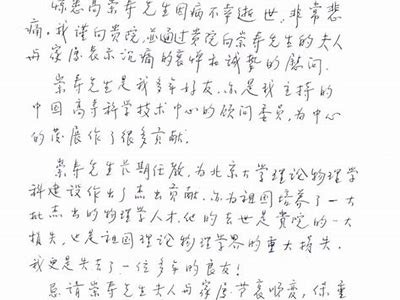 惊悉高崇寿先生因病不幸逝世,非常悲
痛。我谨向贵院,並通过贵院向崇寿先生的夫人
与家属表示沉痛的哀悼和诚挚的慰问.
崇寿先生是我多年好友.亦是我主持的
中国高等科学技术中心的顾问委员,为中心
的发展作了很多贡献.
崇寿先生长期任教,为北京大学理论物理学
科建设作出了杰出贡献.亦为祖国培养了一大
批杰出的物理学人才.他的去世是贵院的一大
损失,也是祖国理论物理学界的重大损失.
我更是失去了一位多年的良友!
恳请崇寿先生夫人与家属节哀顺变,保重